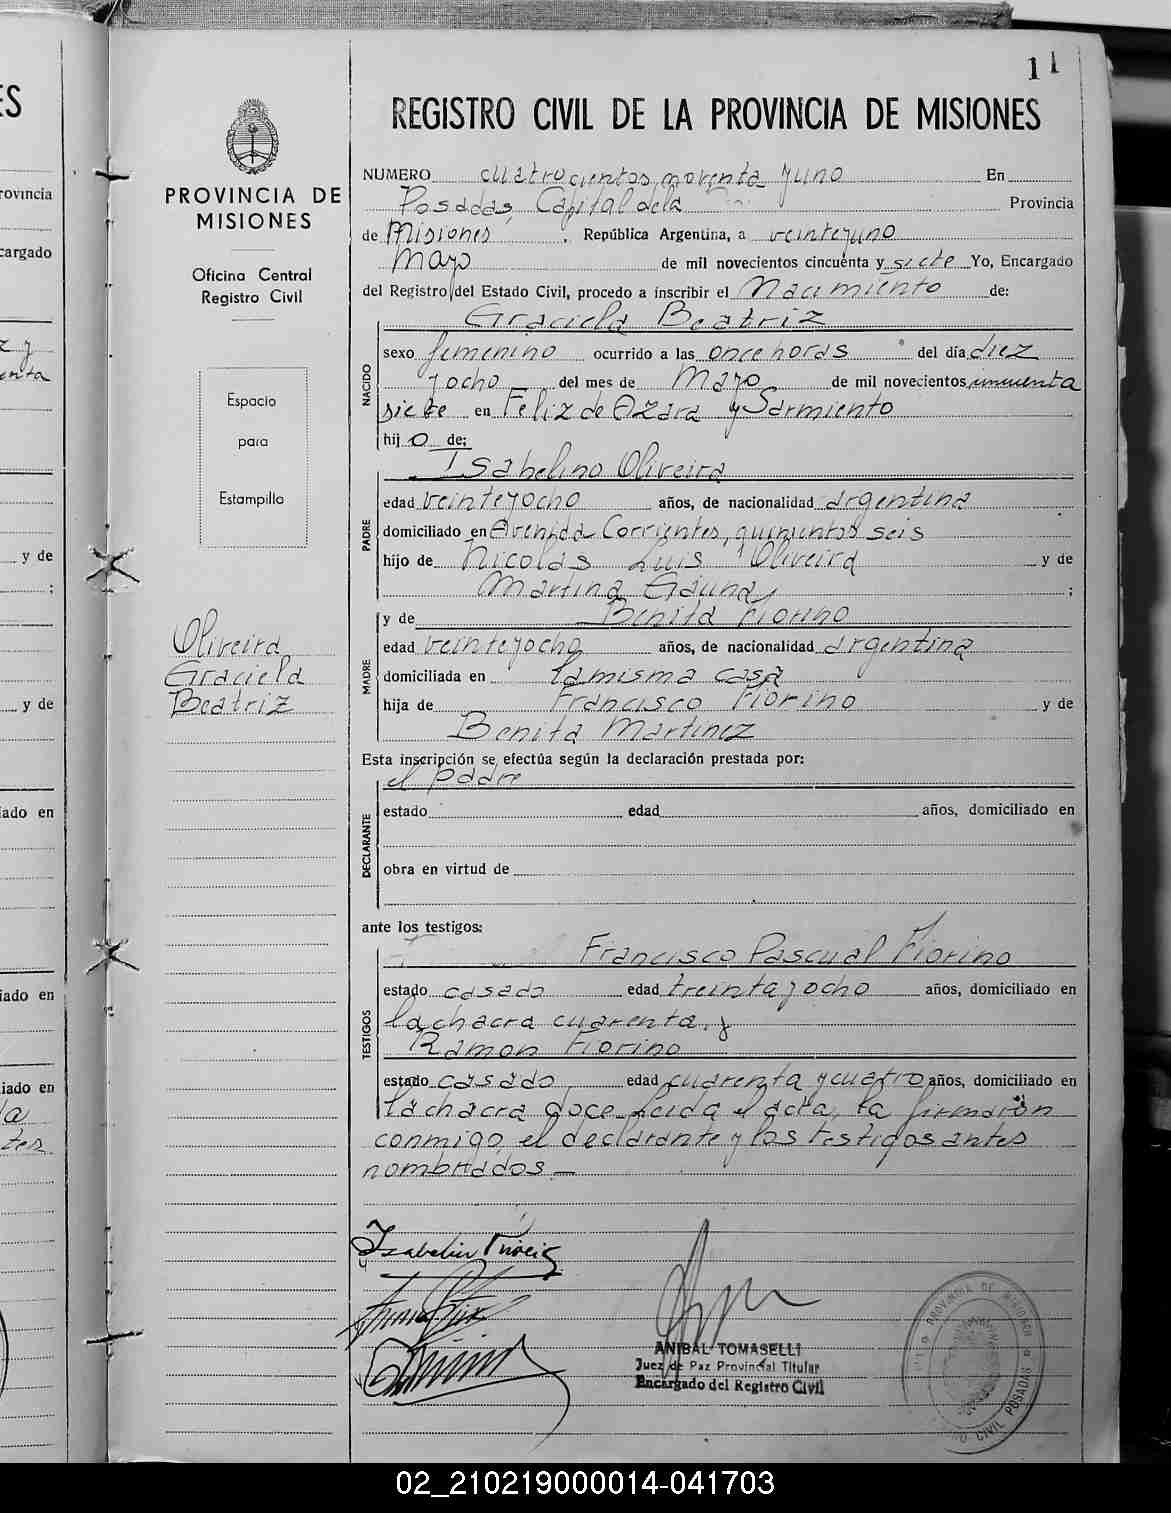 11
REGISTRO CIVIL DE LA PROVINCIA DE MISIONES
PROVINCIA DE
MISIONES
Oficina Central
Registro Civil
Espacio
para
Estampilla
Oliveira
Graciela
Beatriz
NUMERO cuatrocientos noventa y uno En
Posadas, Capital de la Provincia
de Misiones República Argentina, a veinteyuno
Mayo de mil novecientos cincuenta y siete Yo, Encargado
del Registro del Estado Civil, procedo a inscribir el Nacimiento de:
Graciela Beatriz
NACIDO
sexo femenino ocurrido a las once horas del día diez
yocho del mes de Mayo de mil novecientos cincuenta
siete en Feliz de Azara y Sarmiento
hijo de:
Isabelino Oliveira
PADRE
edad veinteyocho años, de nacionalidad argentina
domiciliado en Avenida Corrientes, quinientos seis
hijo de Nicolás Luis Oliveira y de
Martina Gauna ;
y de Benita Fiorino
MADRE
edad veinteyocho años, de nacionalidad argentina
domiciliada en la misma casa
hija de Francisco Fiorino y de
Benita Martinez
Esta inscripción se efectúa según la declaración prestada por:
el padre
DECLARANTE
estado edad años, domiciliado en
obra en virtud de
ante los testigos:
Francisco Pascual Fiorino
TESTIGOS
estado casado edad treinta y ocho años, domiciliado en
la chacra cuarenta y
Ramon Fiorino
estado casado edad cuarenta y cuatro años, domiciliado en
la chacra doce. Leida el acta, la firmaron
conmigo, el declarante y los testigos antes
nombrados.
Isabelino
ANIBAL TOMASELLI
Juez de Paz Provincial Titular
Encargado del Registro Civil
PROVINCIA DE MISIONES
CIVIL POSADAS
ES
rovincia
cargado
y de
;
y de
ado en
iado en
iado en
02_210219000014-041703